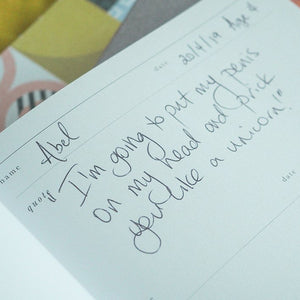 date 20/4/19 Age 4
name Abel
quote I'm going to put my penis
on my head and prick
you like a unicorn!"
date